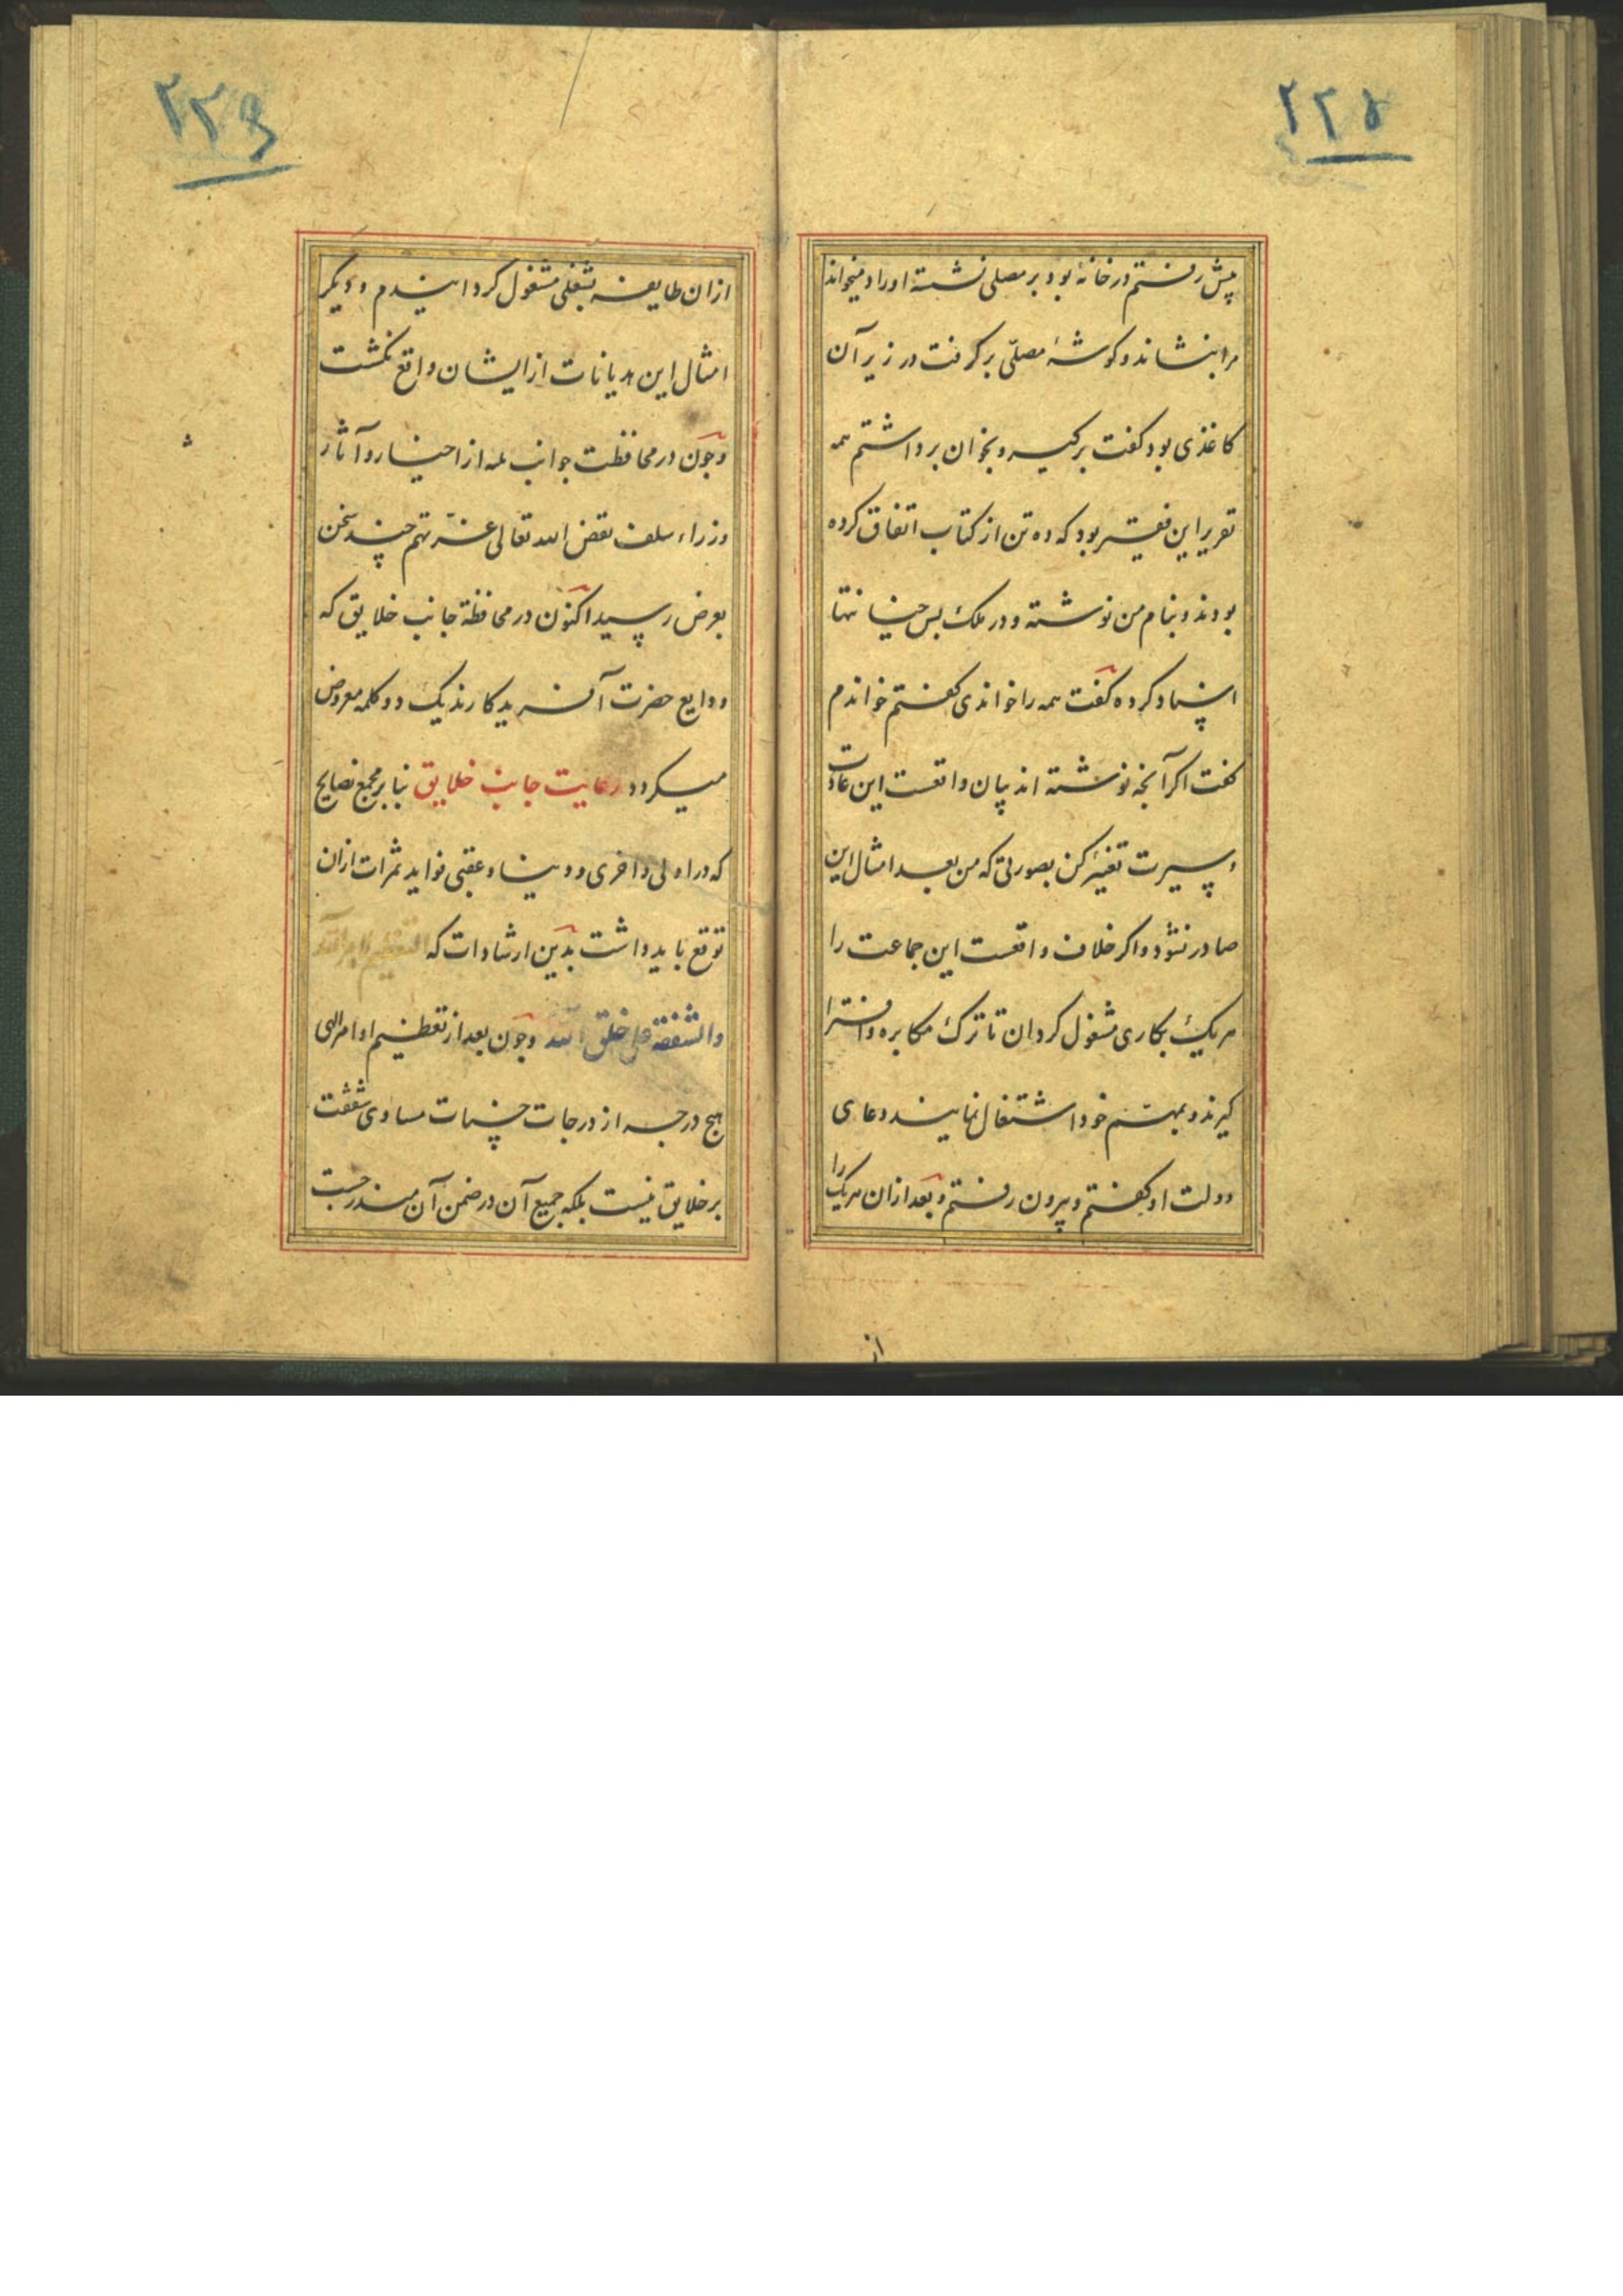 ۲۲۵
پیش رفتم در خانهٔ بود بر مصلی نشسته اوراد میخواند
مرا بنشاند و کوشهٔ مصلّی برکرفت در زیر آن
کاغذی بود کفت برکیر و بخوان برداشتم همه
تقریر این فقیر بود که ده تن از کتاب اتفاق کرده
بودند و بنام من نوشته و در ملک بس خیانتها
اسناد کرده کفت همه را خواندی کفتم خواندم
کفت اکر آنچه نوشته اند بیان واقعست این عادت
و سیرت تغییر کن بصورتی که من بعد امثال این
صادر نشود و اکر خلاف واقعست این جماعت را
هریک بکاری مشغول کردان تا ترک مکابره و افترا
کیرند و بمهم خود اشتغال نمایند دعای
دولت او کفتم و بیرون رفتم و بعد ازان هریک را
از
۲۲۶
ازان طایفه بشغلی مشغول کردانیدم و دیکر
امثال این هدیانات از ایشان واقع نکشت
و چون در محافظت جوانب ثلثه از اخبار و آثار
وزراء سلف بفضل الله تعالی عزّ سخن
بعرض رسید اکنون در محافظة جانب خلایق که
ودایع حضرت آفریدکارند یک دو کلمه معروض
میکردد رعایت جانب خلایق بنابر مجمع نصایح
که در اولی و اخری و دنیا و عقبی فواید ثمرات ازان
توقع باید داشت بدین ارشادات که التعظیم لامر الله
والشفقة علی خلق الله و چون بعد از تعظیم اوامر الهی
هیچ درجه از درجات حسنات مساوی شفقت
بر خلایق نیست بلکه جمیع آن در ضمن آن مندرجست